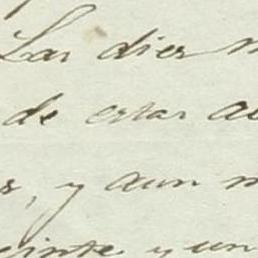 Las diez m
de estar au
s, y aun m
veinte y un